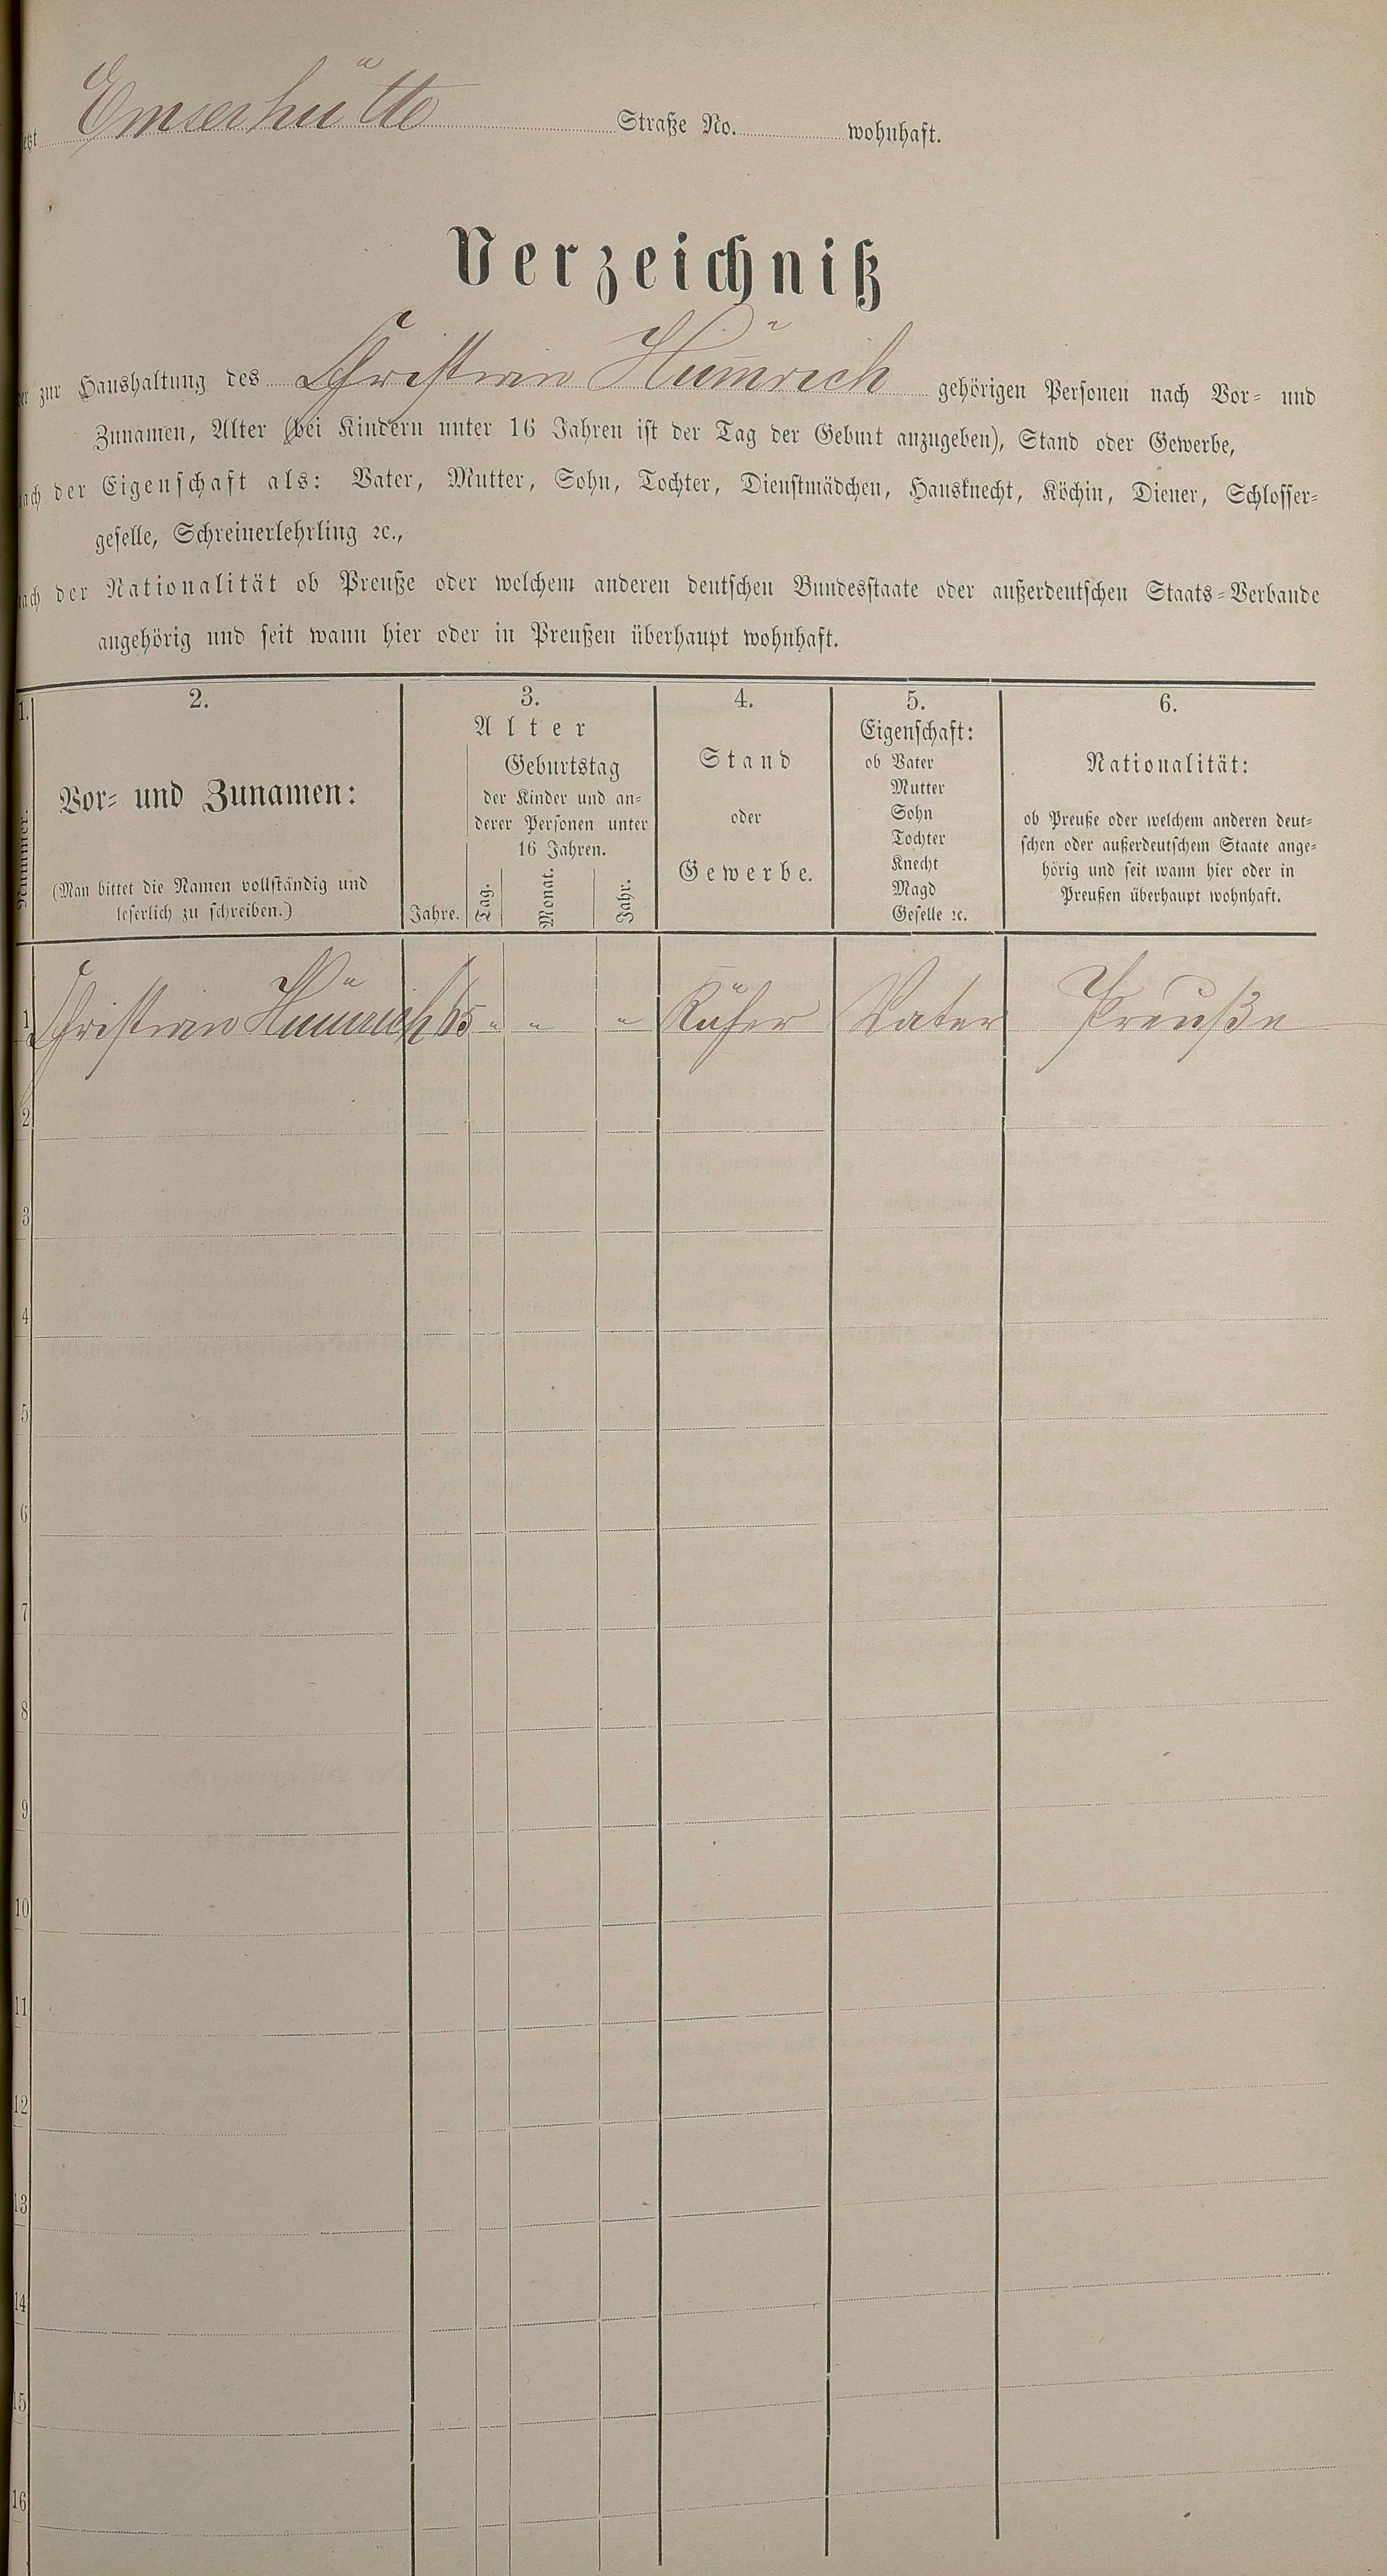 Emserhütte Straße No. wohnhaft.
Verzeichniß
zur Haushaltung des Christian Hümrich gehörigen Personen nach Vor- und
Zunamen, Alter (bei Kindern unter 16 Jahren ist der Tag der Geburt anzugeben), Stand oder Gewerbe,
nach der Eigenschaft als: Vater, Mutter, Sohn, Tochter, Dienstmädchen, Hausknecht, Köchin, Diener, Schlosser-
geselle, Schreinerlehrling ꝛc.,
nach der Nationalität ob Preuße oder welchem anderen deutschen Bundesstaate oder außerdeutschen Staats-Verbande
angehörig und seit wann hier oder in Preußen überhaupt wohnhaft.
1.
Nummer.
2.
Vor- und Zunamen:
(Man bittet die Namen vollständig und
leserlich zu schreiben.)
3.
Alter
Geburtstag
der Kinder und an-
derer Personen unter
16 Jahren.
Jahre. Tag. Monat. Jahr.
4.
Stand
oder
Gewerbe.
5.
Eigenschaft:
ob Vater
Mutter
Sohn
Tochter
Knecht
Magd
Geselle ꝛc.
6.
Nationalität:
ob Preuße oder welchem anderen deut-
schen oder außerdeutschem Staate ange-
hörig und seit wann hier oder in
Preußen überhaupt wohnhaft.
1 Christian Hümrich 65 " " " Küfer Vater Preuße
2
3
4
5
6
7
8
9
10
11
12
13
14
15
16